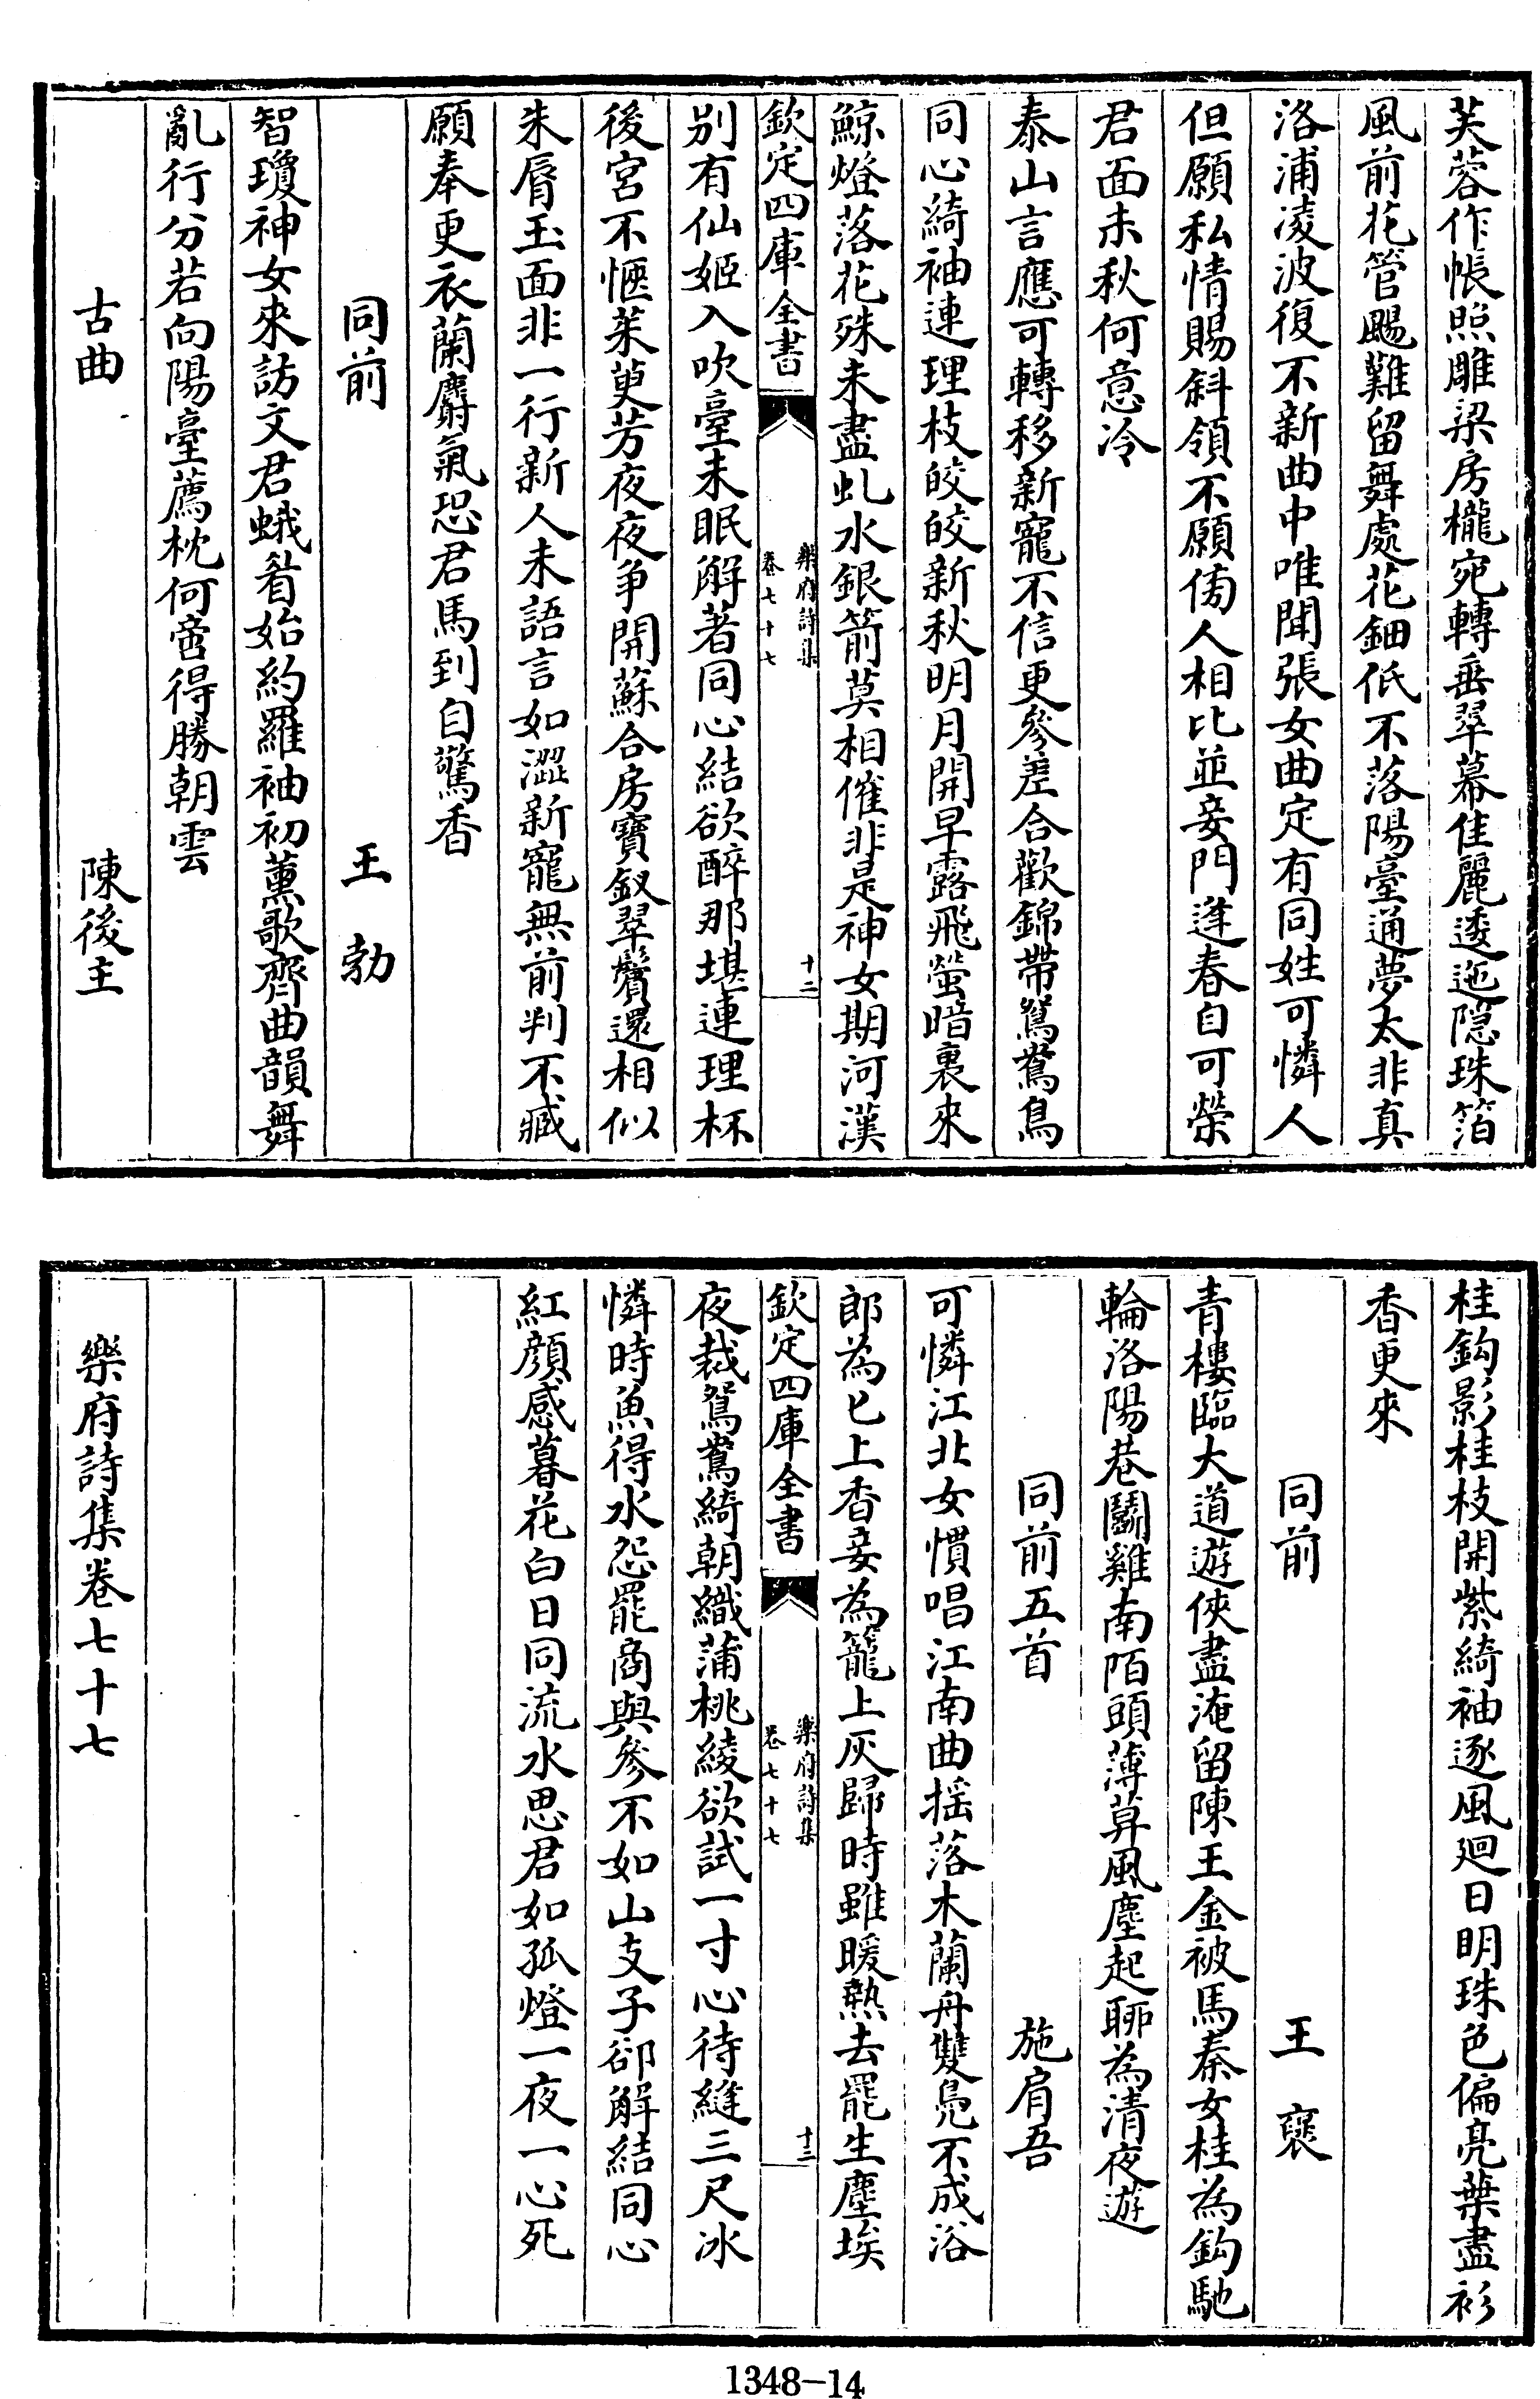 芙蓉作帳照雕梁房櫳宛轉垂翠幕佳麗逶迤隠珠箔
風前花管颺難留舞處花鈿低不落陽臺通夢太非真
洛浦凌波復不新曲中唯聞張女曲定有同姓可憐人
但願私情賜斜領不願傍人相比並妾門逢春自可榮
君面未秋何意冷
泰山言應可轉移新寵不信更參差合歡錦帶鴛鴦鳥
同心綺袖連理枝皎皎新秋明月開早露飛螢暗裏來
鯨燈落花殊未盡虬水銀箭莫相催非是神女期河漢
欽定四庫全書
樂府詩集
卷七十七
十二
别有仙姬入吹臺未眠解著同心結欲醉那堪連理杯
後宮不愜茱萸芳夜夜爭開蘇合房寶釵翠鬢還相似
朱脣玉面非一行新人未語言如澀新寵無前判不臧
願奉更衣蘭麝氣恐君馬到自驚香
同前 王勃
智瓊神女來訪文君蛾眉始約羅袖初薰歌齊曲韻舞
亂行分若向陽臺薦枕何啻得勝朝雲
古曲 陳後主
桂鈎影桂枝開紫綺袖逐風迴日明珠色偏亮葉盡衫
香更來
同前 王襃
青樓臨大道遊俠盡淹留陳王金被馬秦女桂為鈎馳
輪洛陽巷鬭雞南陌頭薄暮風塵起聊為清夜遊
同前五首 施肩吾
可憐江北女慣唱江南曲揺落木蘭舟雙鳧不成浴
郎為匕上香妾為籠上灰歸時雖暖熱去罷生塵埃
欽定四庫全書
樂府詩集
卷七十七
十三
夜裁鴛鴦綺朝織蒲桃綾欲試一寸心待縫三尺冰
憐時魚得水怨罷商與參不如山支子卻解結同心
紅顔感暮花白日同流水思君如孤燈一夜一心死
樂府詩集卷七十七
1348-14